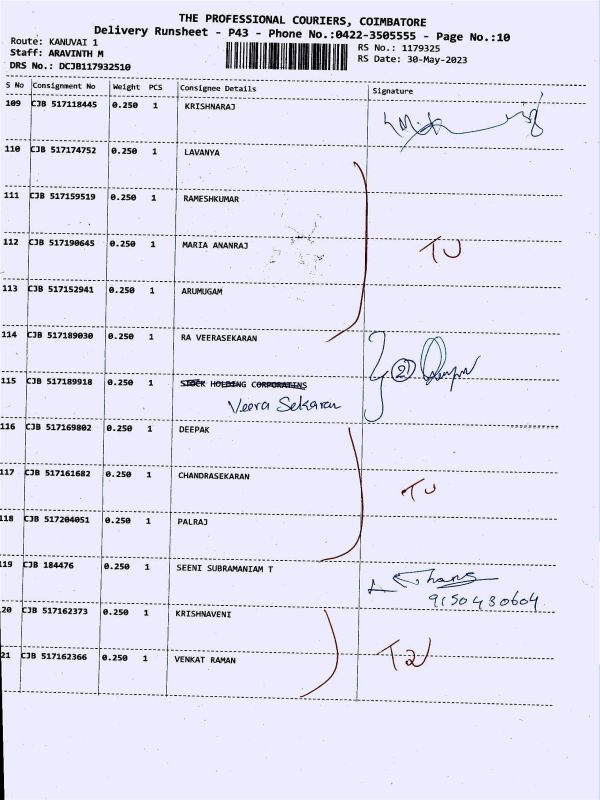 THE PROFESSIONAL COURIERS, COIMBATORE
Delivery Runsheet - P43 - Phone No.:0422-3505555 - Page No.:10
Route: KANUVAI 1
Staff: ARAVINTH M
DRS No.: DCJB117932510
RS No.: 1179325
RS Date: 30-May-2023
S No Consignment No Weight PCS Consignee Details Signature
109 CJB 517118445 0.250 1 KRISHNARAJ
110 CJB 517174752 0.250 1 LAVANYA
111 CJB 517159519 0.250 1 RAMESHKUMAR
112 CJB 517190645 0.250 1 MARIA ANANRAJ
TU
113 CJB 517152941 0.250 1 ARUMUGAM
114 CJB 517189030 0.250 1 RA VEERASEKARAN
2
115 CJB 517189918 0.250 1 STOCK HOLDING CORPORATINS
Veera Sekaran
116 CJB 517169802 0.250 1 DEEPAK
117 CJB 517161682 0.250 1 CHANDRASEKARAN
TU
118 CJB 517204051 0.250 1 PALRAJ
119 CJB 184476 0.250 1 SEENI SUBRAMANIAM T
9150430604
20 CJB 517162373 0.250 1 KRISHNAVENI
21 CJB 517162366 0.250 1 VENKAT RAMAN